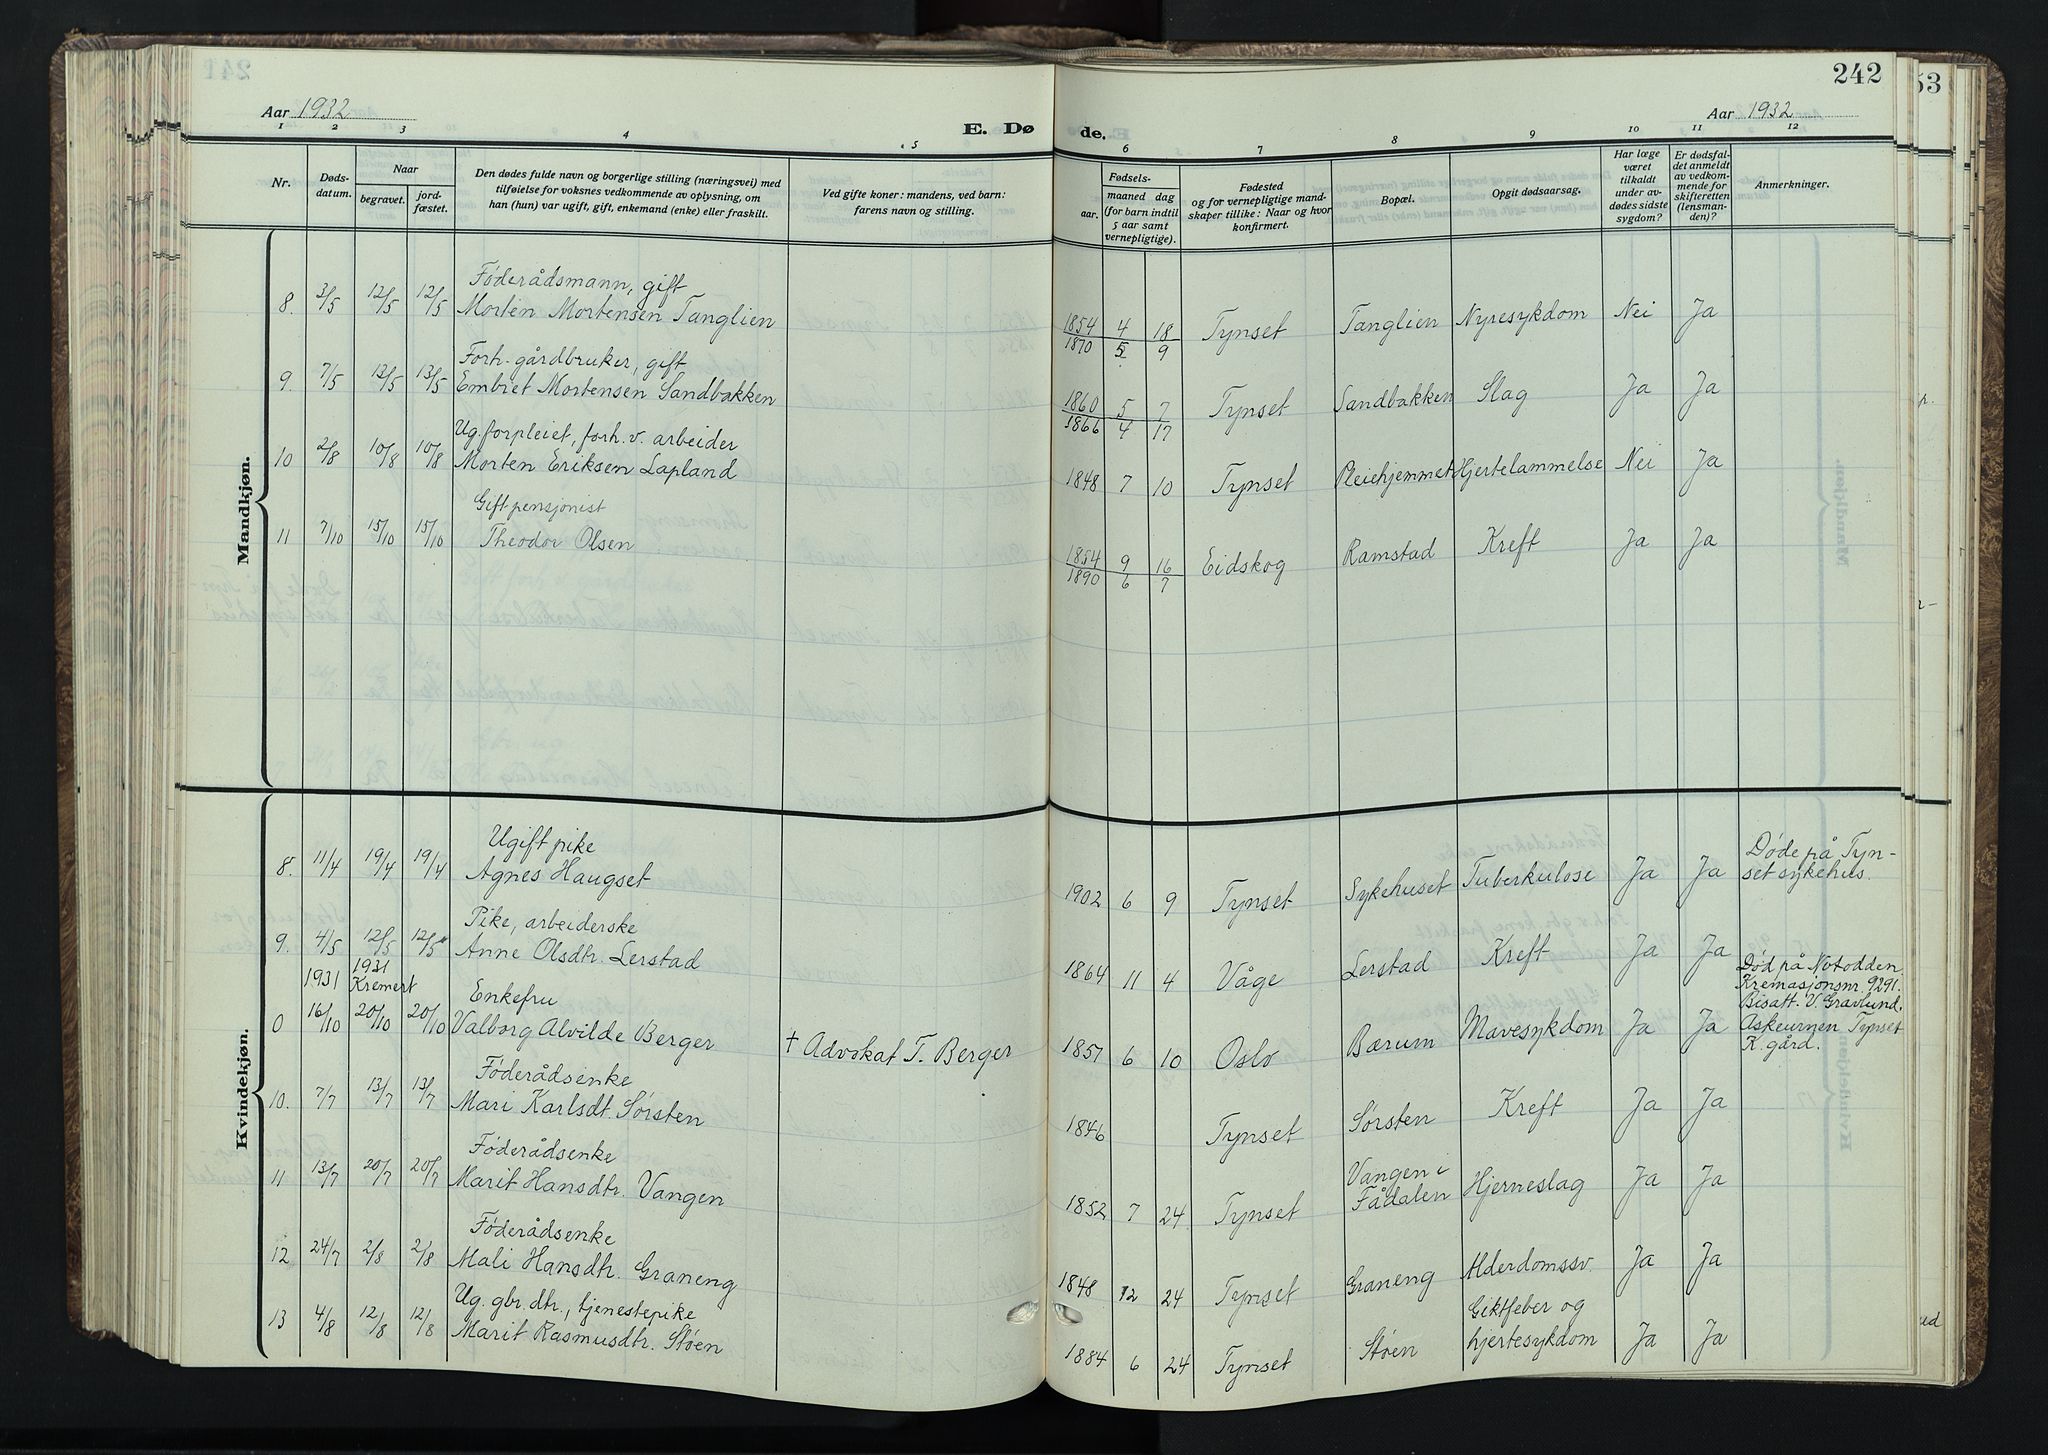 242
Aar 1932
E. Dø de.
Aar 1932
1 2 3 4 5 6 7 8 9 10 11 12
Nr. Døds-datum. Naar begravet. jord-fæstet. Den dødes fulde navn og borgerlige stilling (næringsvei) med tilføielse for voksnes vedkommende av oplysning, om han (hun) var ugift, gift, enkemand (enke) eller fraskilt. Ved gifte koner: mandens, ved barn: farens navn og stilling. Fødsels- aar. maaned dag (for barn indtil 5 aar samt vernepligtige). Fødested og for vernepligtige mand-skaper tillike: Naar og hvor konfirmert. Bopæl. Opgit dødsaarsag. Har læge været tilkaldt under av-dødes sidste sygdom? Er dødsfal-det anmeldt av vedkom-mende for skifteretten (lensman-den)? Anmerkninger.
Mandkjøn.
Føderådsmann, gift
8. 3/5 12/5 12/5 Morten Mortensen Tanglien 1854 4 18 Tynset Tanglien Nyresykdom Nei Ja
1870 5 9
Forh. gårdbruker, gift
9. 7/5 13/5 13/5 Embret Mortensen Sandbakken 1860 5 7 Tynset Sandbakken Slag Ja Ja
1866 4 17
Ug. forpleiet, forh. v. arbeider
10 2/8 10/8 10/8 Morten Eriksen Lapland 1848 7 10 Tynset Pleiehjemmet Hjertelammelse Nei Ja
Gift pensjonist
11 7/10 15/10 15/10 Theodor Olsen 1854 9 16 Eidskog Ramstad Kreft Ja Ja
1890 6 7
Kvindekjøn.
Ugift pike
8. 11/4 19/4 19/4 Agnes Haugset 1902 6 9 Tynset Sykehuset Tuberkulose Ja Ja Døde på Tyn-
set sykehus.
Pike, arbeiderske
9. 4/5 12/5 12/5 Anne Olsdtr. Lerstad 1864 11 4 Våge Lerstad Kreft Ja Ja
1931 1931 Kremert Enkefru Død på Notodden
Kremasjonsnr. 9291.
Bisatt. V. Gravlund.
0 16/10 20/10 20/10 Valborg Alvilde Berger † Advokat T. Berger 1857 6 10 Oslo Bærum Mavesykdom Ja Ja Askeurnen Tynset
K. gård.
Føderådsenke
10. 7/7 13/7 13/7 Mari Karlsdt. Sørsten 1846 Tynset Sørsten Kreft Ja Ja
Føderådsenke
11 13/7 20/7 20/7 Marit Hansdtr. Vangen 1852 7 24 Tynset Vangen i Fådalen Hjerneslag Ja Ja
Føderådsenke
12 24/7 2/8 2/8 Mali Hansdtr. Graneng 1848 12 24 Tynset Graneng Alderdomssv. Ja Ja
Ug. gbr. dtr., tjenestepike
13 4/8 12/8 12/8 Marit Rasmusdtr. Støen 1884 6 24 Tynset Støen Giktfeber og hjertesykdom Ja Ja